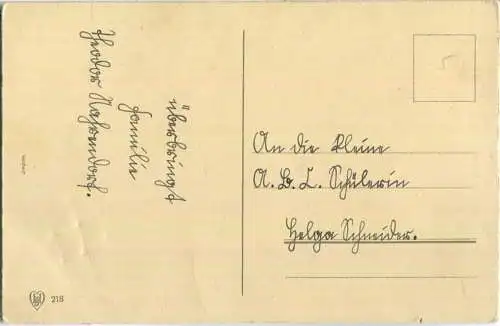 überbringt
Familie
Theodor Nahrendorf.
An die kleine
A.B.C. Schülerin
Helga Schneider.
218